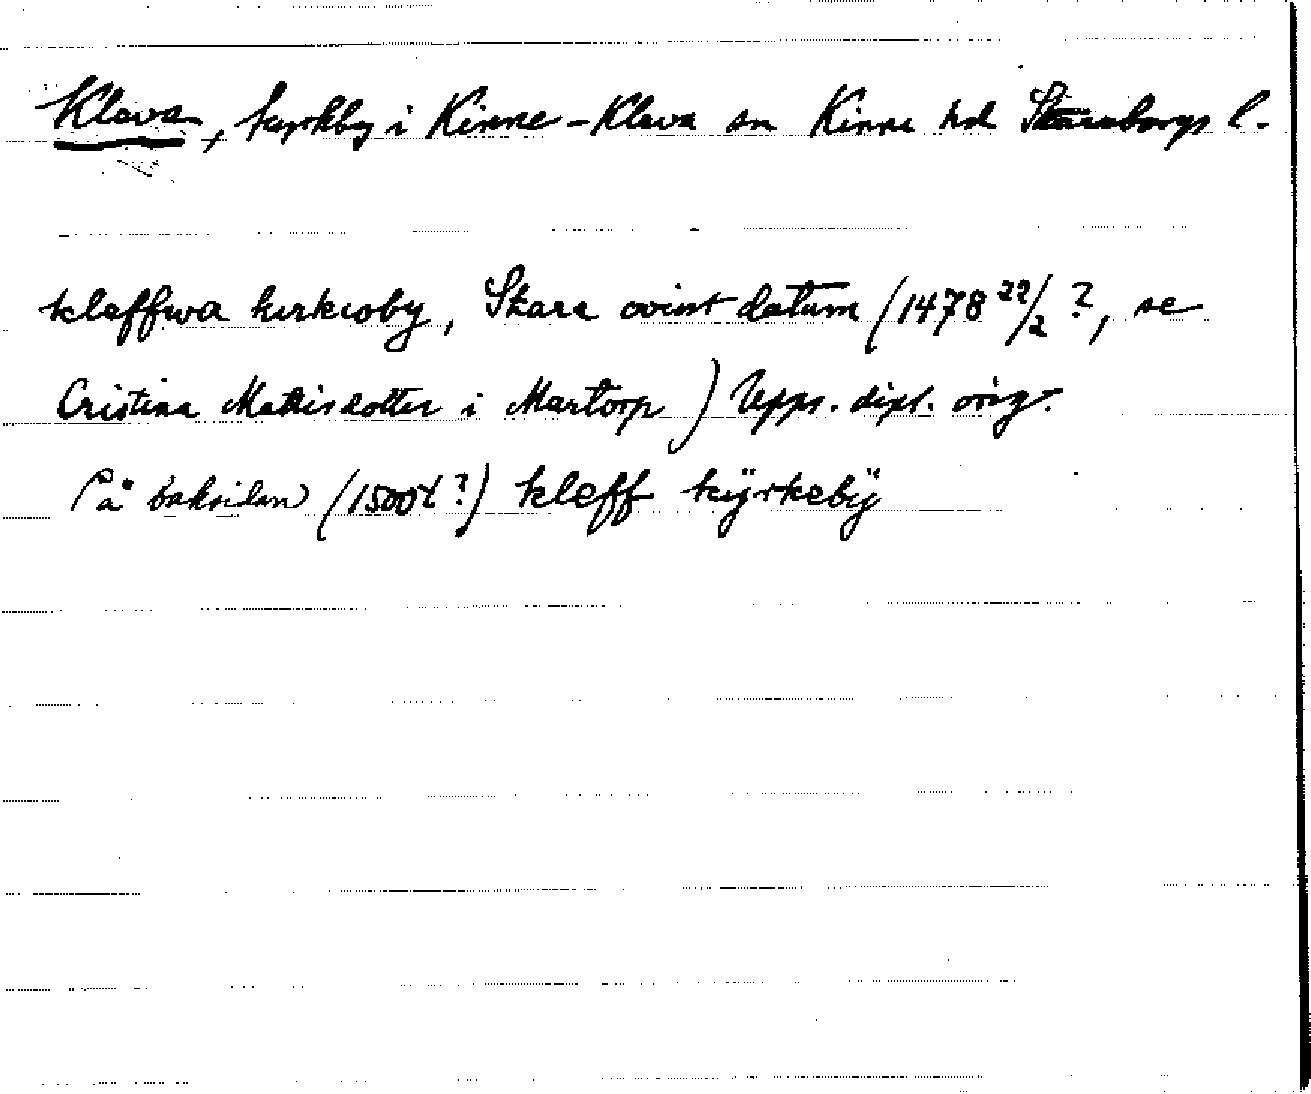 Kleva, kyrkby i Kinne-Kleva sn Kinne hd Skaraborgs l.
kleffwa kirkioby, Skara ovisst datum (1478 22/2 ?, se
Cristina Mattisdotter i Martorp) Upps. dipl. orig.
På baksidan (1500t ?) kleff kÿrkebÿ